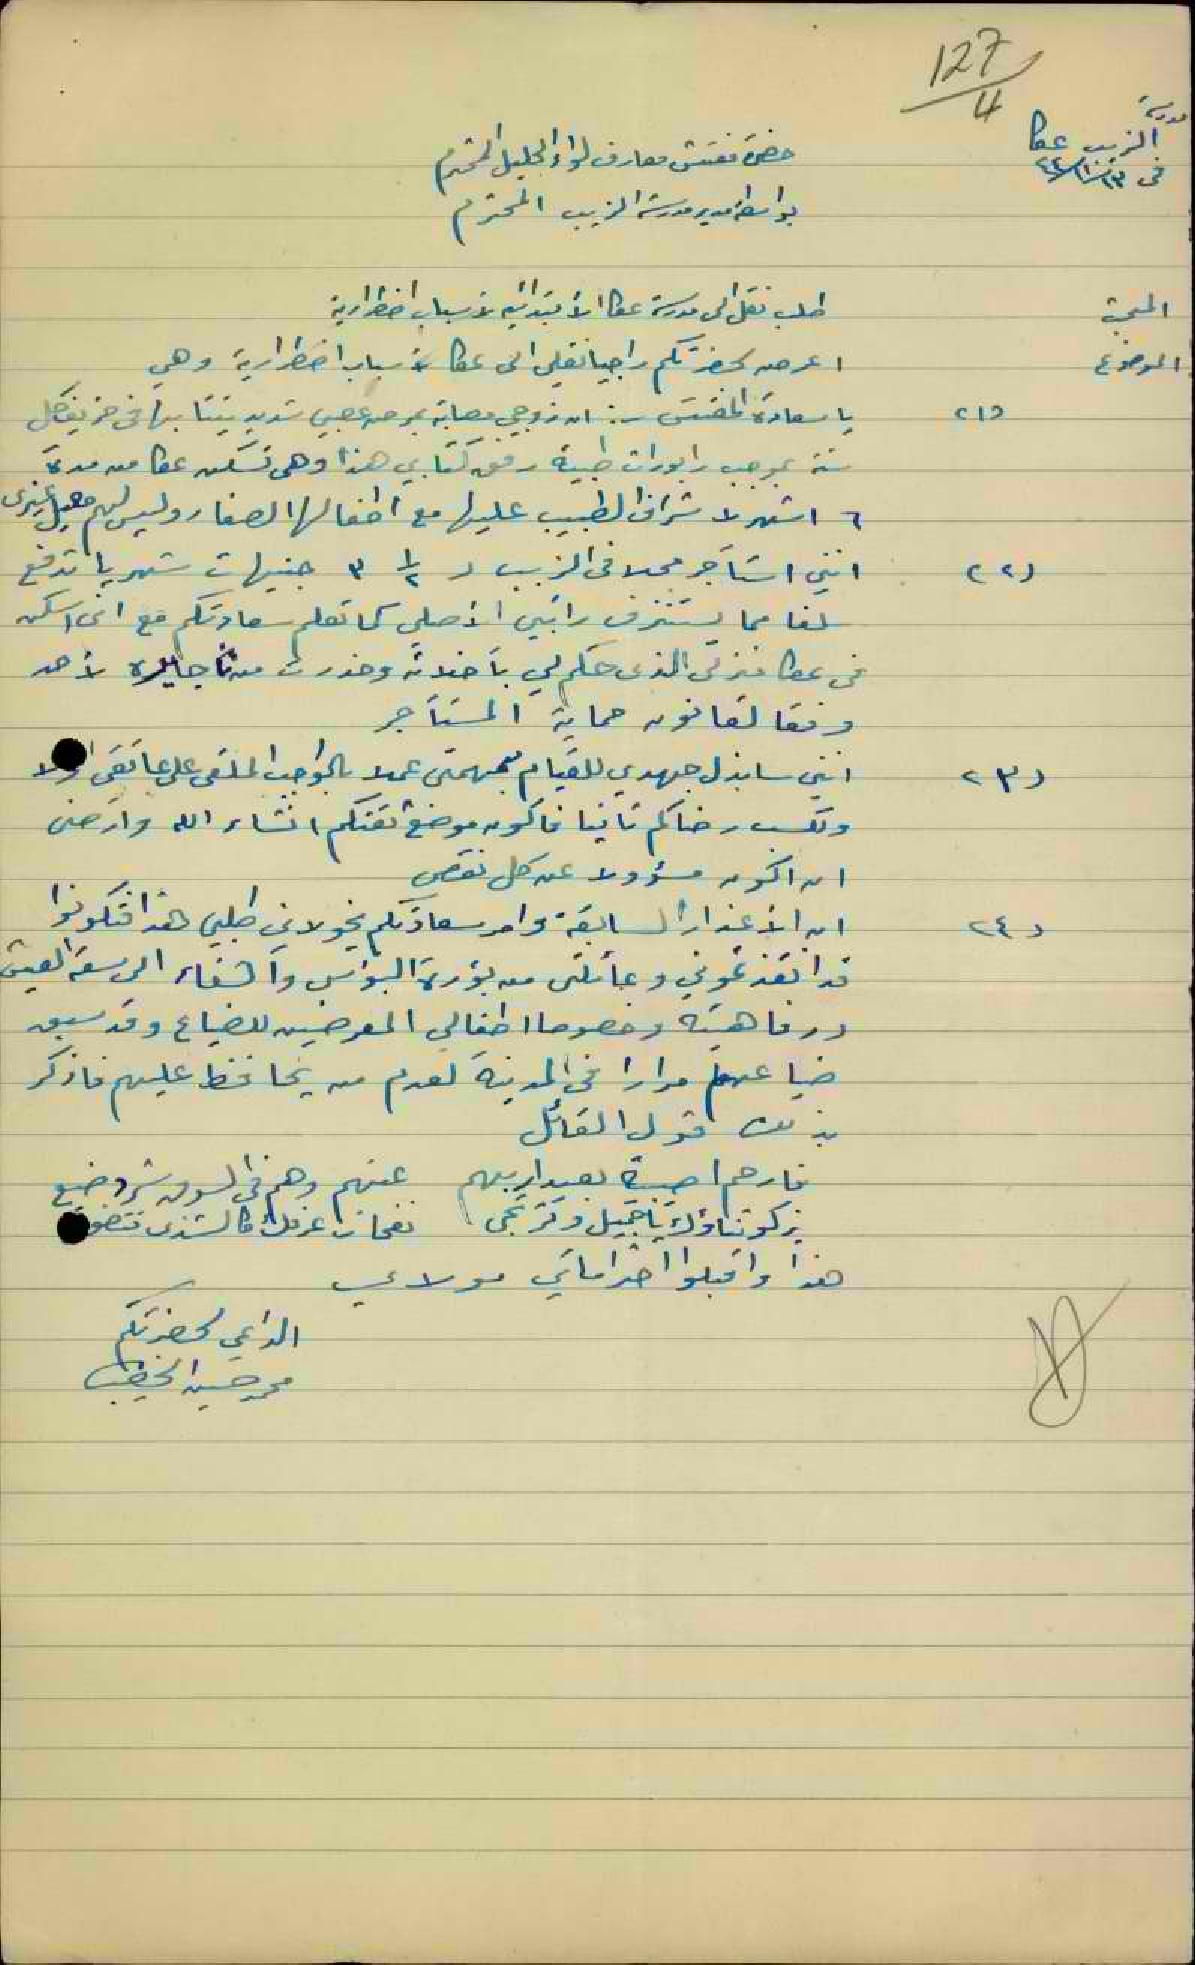 127/4
مدرسة
الزيب عكا
في
حضرة مفتش معارف لواء الجليل المحترم
بواسطة مدير مدرسة الزيب المحترم
طلب نقل الى مدرسة عكا الأبتدائيه لأسباب اضطرارية
الموضوع اعرض لحضرتكم راجيا نقلي الى عكا لأسباب اضطرارية وهي
(١) يا سعادة المفتش : ان زوجتي مصابة بمرض عصبي شديد ينتابها في خريف كل
سنة بموجب رابورات طبية رفق كتابي هذا وهي تسكن عكا من مدة
٦ اشهر لاشراف الطبيب عليها مع اطفالها الصغار وليس لهم معيل غيري
(٢) انني استأجر محلا في الزيب ﺑ ١/٢ ٣ جنيهات شهريا تدفع
سلفا مما يستنزف راتبي الأصلي كما تعلم سعادتكم مع اني اسكن
في عكا منزلي الذي حكم لي بأخلائه وحذرت من تأجيره لأحد
وفقا لقانون حماية المستأجر
(٣) انني سابذل جهدي للقيام بمهمتي عملا بالواجب الملقى على عاتقي اولا
وكسب رضاكم ثانيا فاكون موضع ثقتكم انشاء الله وارضى
ان اكون مسؤولا عن كل نقص
(٤) ان الأعذار السابقة وامر سعادتكم يخولاني طلبي هذا فتكونوا
قد انقذتموني وعائلتي من بؤرة البؤس والشقاء الى سعة العيش
ورفاهيته وخصوصا اطفالي المعرضين للضياع وقد سبق
ضياعهم مرارا في المدينة لعدم من يحافظ عليهم فاذكر
بذلك قول القائل
فارحم اصيبية بعيدا ربهم عنهم وهم في السوق شرد ضيع
يزكو ثناؤك يا جميل وترتجى نفحات عرفك كالشذى تتضوع
هذا واقبلوا احتراماتي مولاي
الداعي لحضرتكم
محمد حسين الخطيب